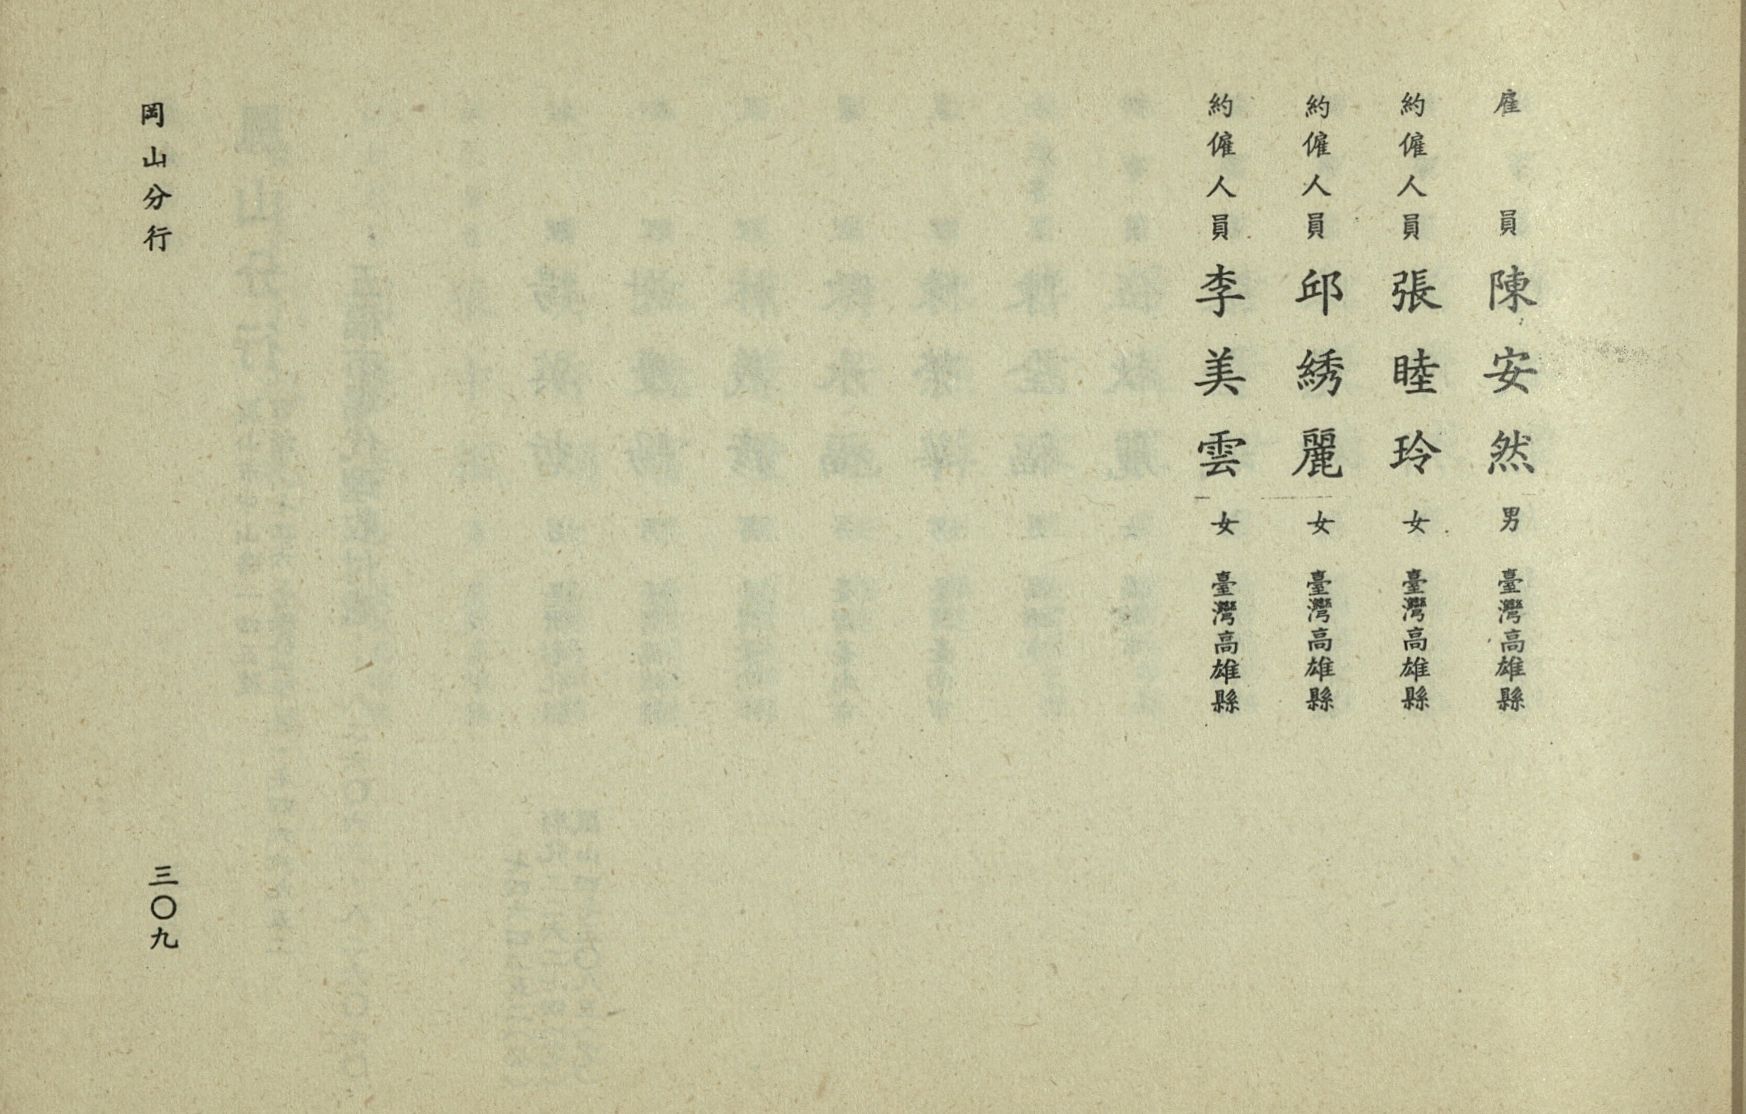 雇員 陳安然 男 臺灣高雄縣
約僱人員 張睦玲 女 臺灣高雄縣
約僱人員 邱綉麗 女 臺灣高雄縣
約僱人員 李美雲 女 臺灣高雄縣
岡山分行
三〇九